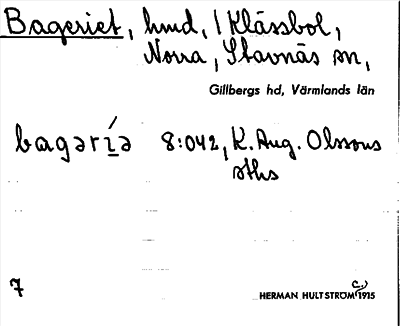 Bageriet, hmd, i Klässbol,
Norra, Stavnäs sn,
Gillbergs hd, Värmlands län
bagərí̲ə 8:042, K. Aug. Olssons
sths
7
HERMAN HULTSTRÖM (c.) 1915